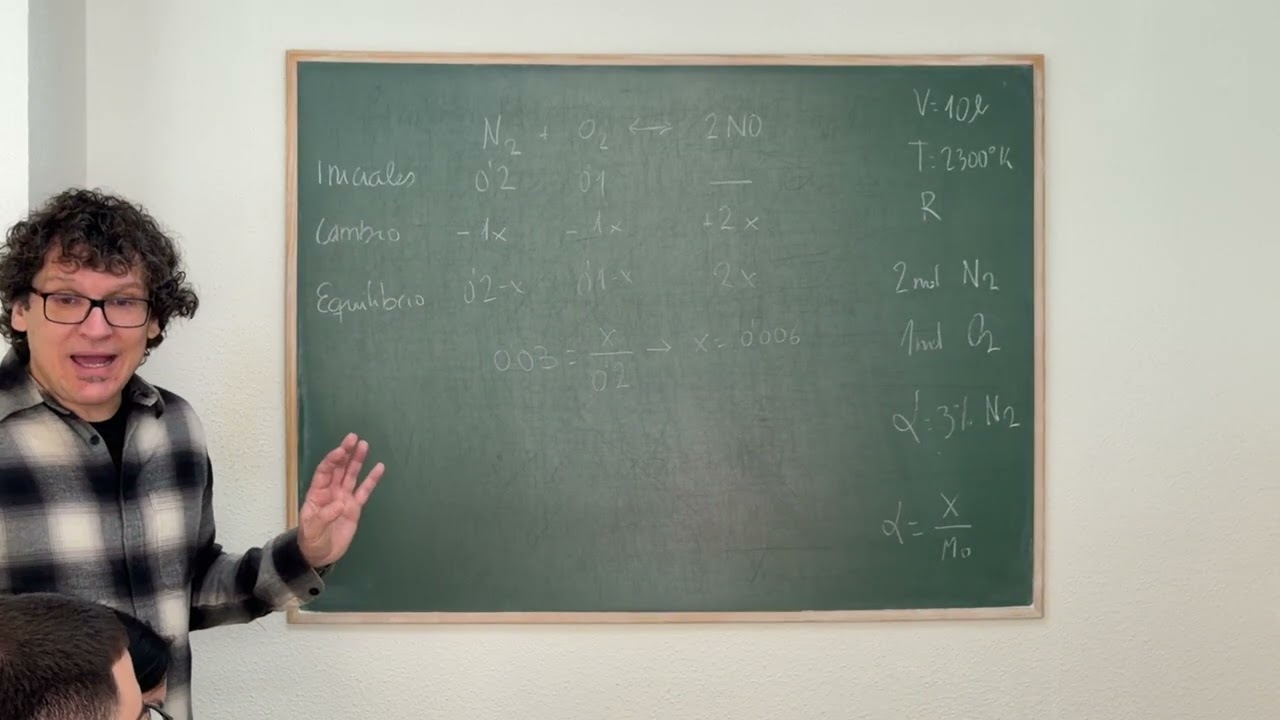 N₂ + O₂ ⟷ 2NO
Iniciales 0'2 0'1 —
Cambio -1x -1x +2x
Equilibrio 0'2-x 0'1-x 2x
0.03 = x/0'2 → x = 0'006
V=10l
T=2300°K
R
2mol N₂
1mol O₂
α=3% N₂
α = x/M₀